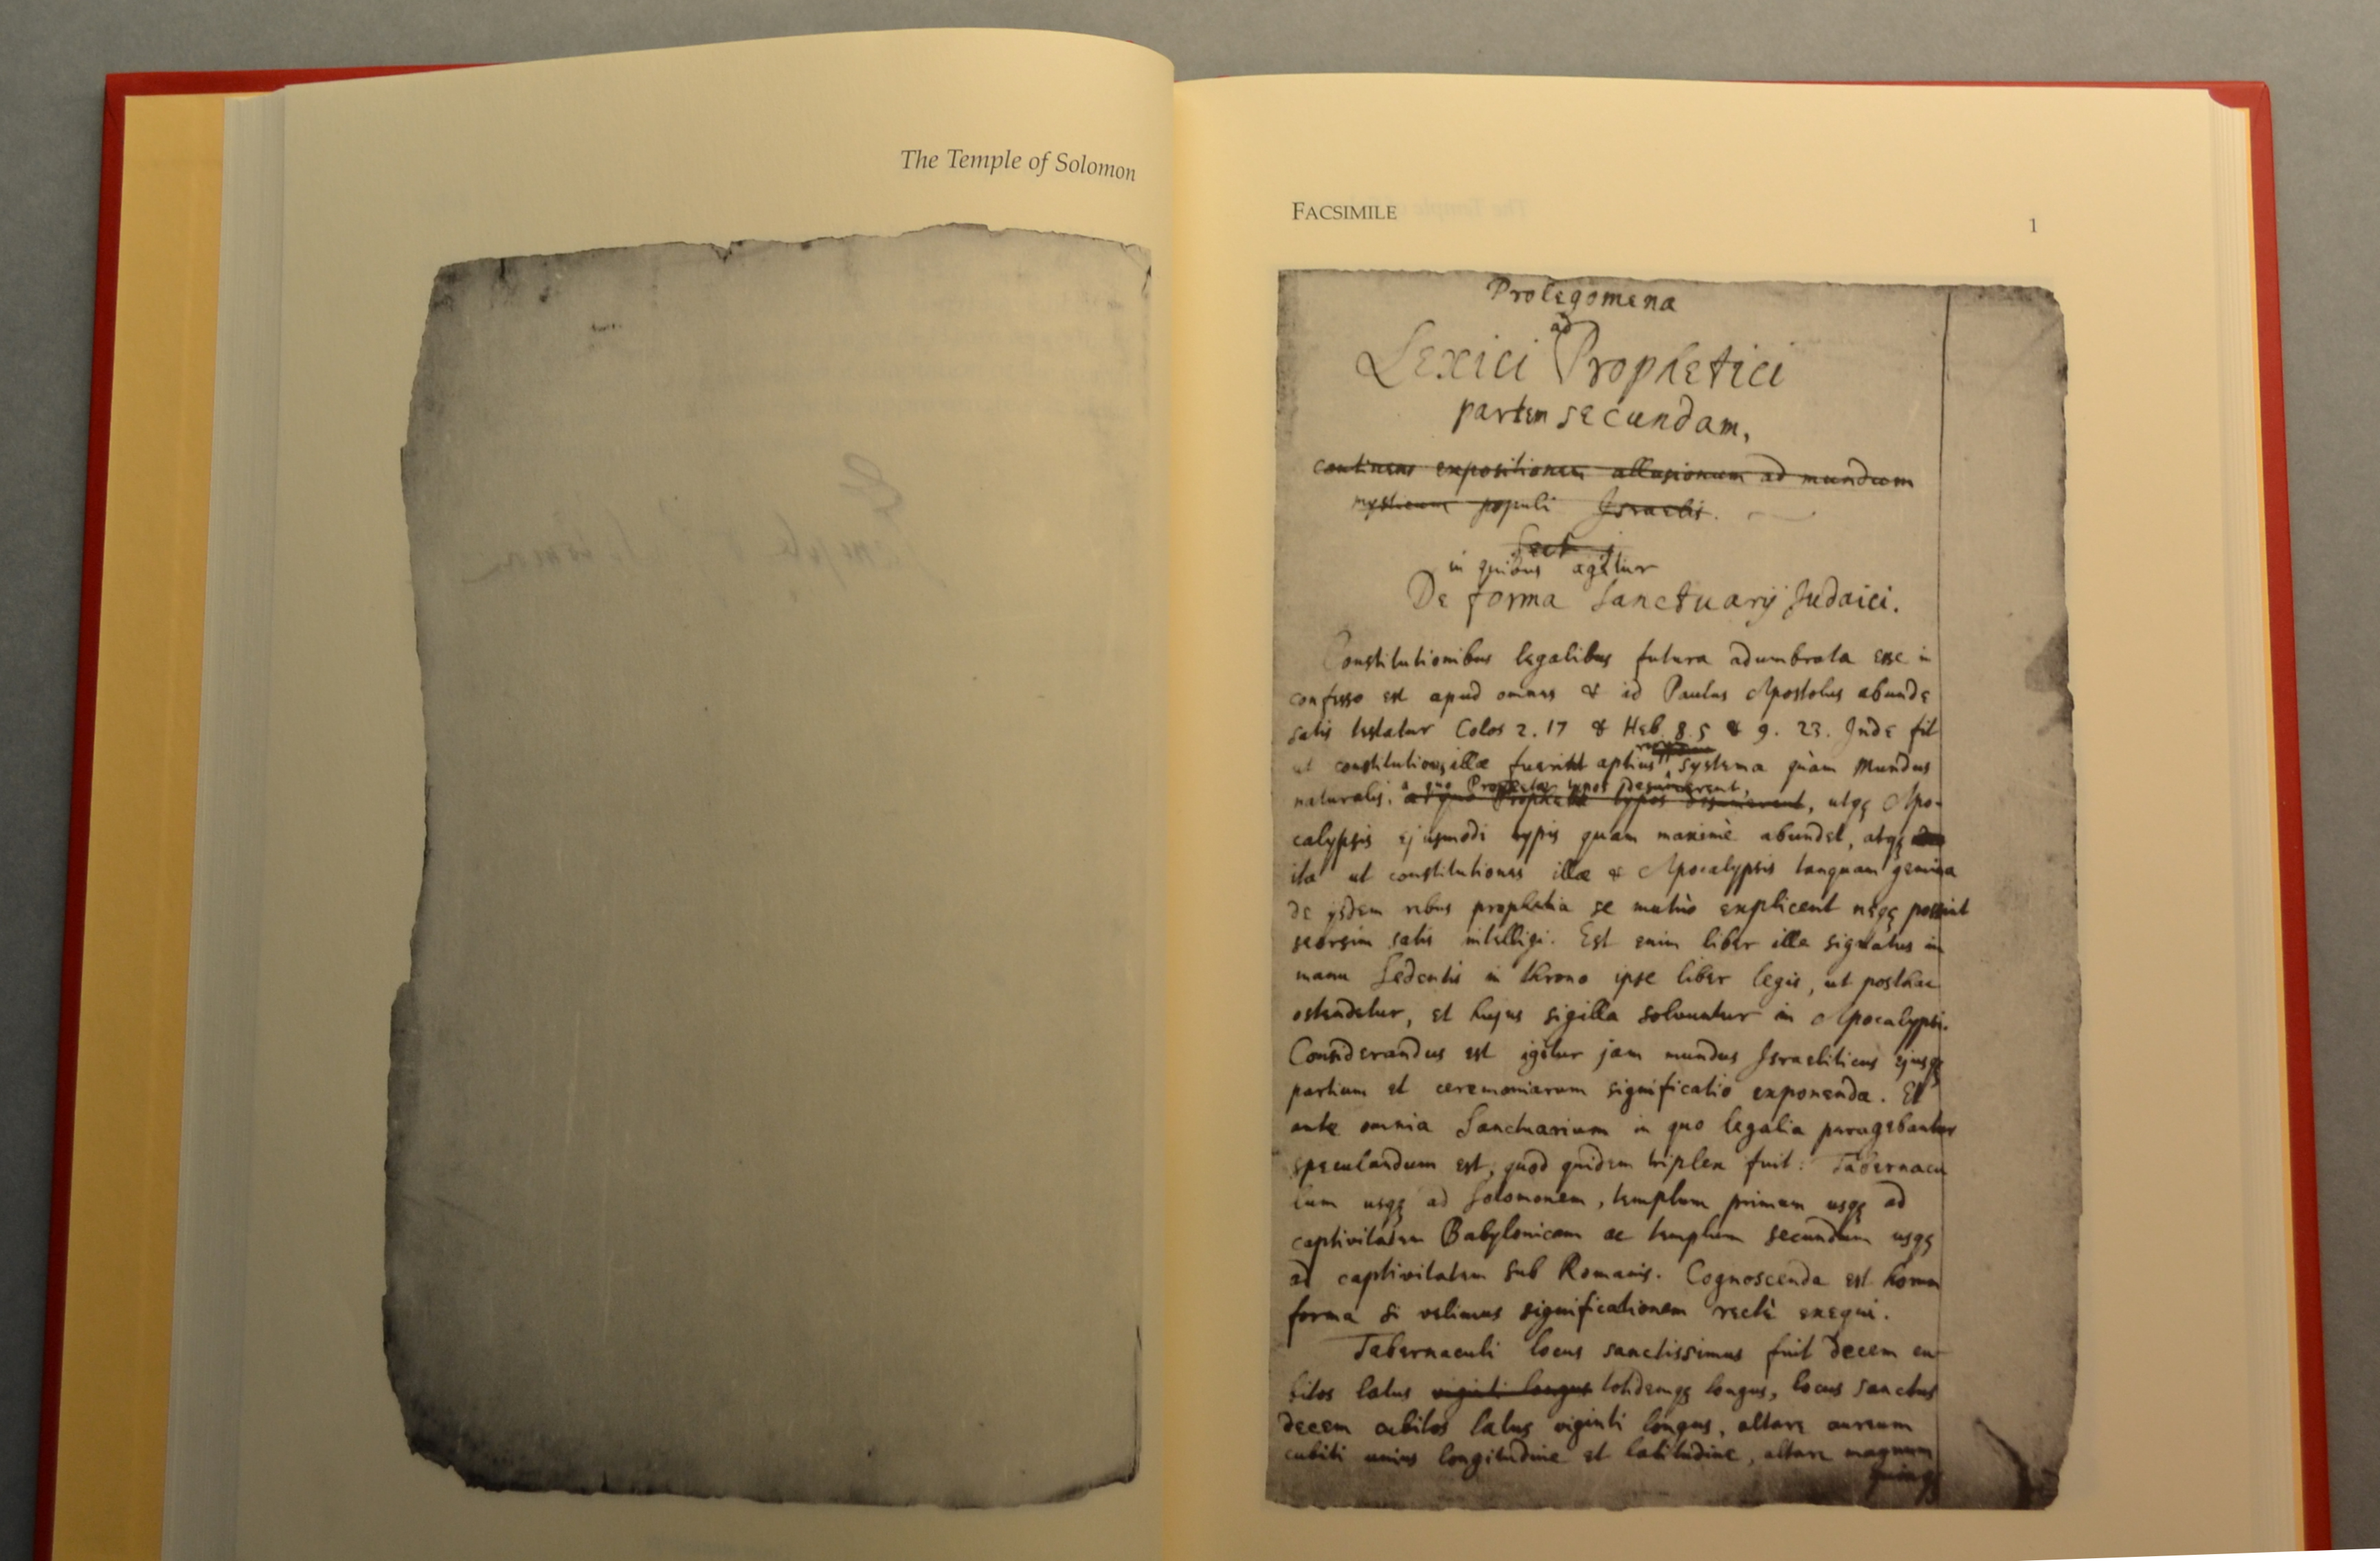 The Temple of Solomon
FACSIMILE
1
Prolegomena
ad
Lexici Prophetici
partem secundam,
continens expositionem allusionum ad mundum
mysticum populi Israelis.
Sect. 1
in quibus agitur
De forma Sanctuarij Judaici.
Constitutionibus legalibus futura adumbrata esse in
confesso est apud omnes & id Paulus Apostolus abunde
satis testatur Colos 2. 17 & Heb. 8. 5 & 9. 23. Inde fit
ut constitutiones illæ fuerint aptius systema quàm Mundus
a quo Prophetæ typos desumerent,
naturalis, a quo Prophetæ typos desumerent, utqȝ Apo-
calypsis ejusmodi typis quam maximè abundet, atqȝ
ita ut constitutiones illæ & Apocalypsis tanquam gemina
de ijsdem rebus prophetia se mutùo explicent neqȝ possint
seorsim satis intelligi. Est enim liber ille signatus in
manu Sedentis in throno ipse liber legis, ut posthac
ostendetur, et hujus sigilla solvuntur in Apocalypsi.
Considerandus est igitur jam mundus Israeliticus ejusqȝ
partium et ceremoniarum significatio exponenda. Et
ante omnia Sanctuarium in quo legalia peragebantur
speculandum est, quod quidem triplex fuit: Tabernacu
lum usqȝ ad Solomonem, templum primum usqȝ ad
captivitatem Babylonicam ac templum secundum usqȝ
ad captivitatem sub Romanis. Cognoscenda est horum
forma si velimus significationem rectè exequi.
Tabernaculi locus sanctissimus fuit decem cu-
bitos latus viginti longus totidemqȝ longus, locus sanctus
decem cubitos latus viginti longus, altare aureum
cubiti unius longitudine et latitudine, altare magnum
quinqȝ